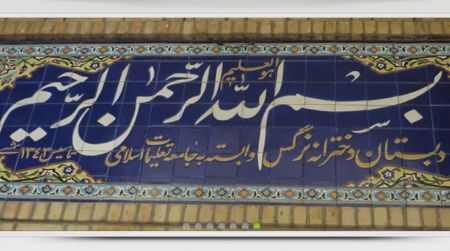 هو العلیم
بسم الله الرحمن الرحیم
دبستان دخترانه نرگس وابسته به جامعه تعلیمات اسلامی
تاسیس ۱۳۴۳